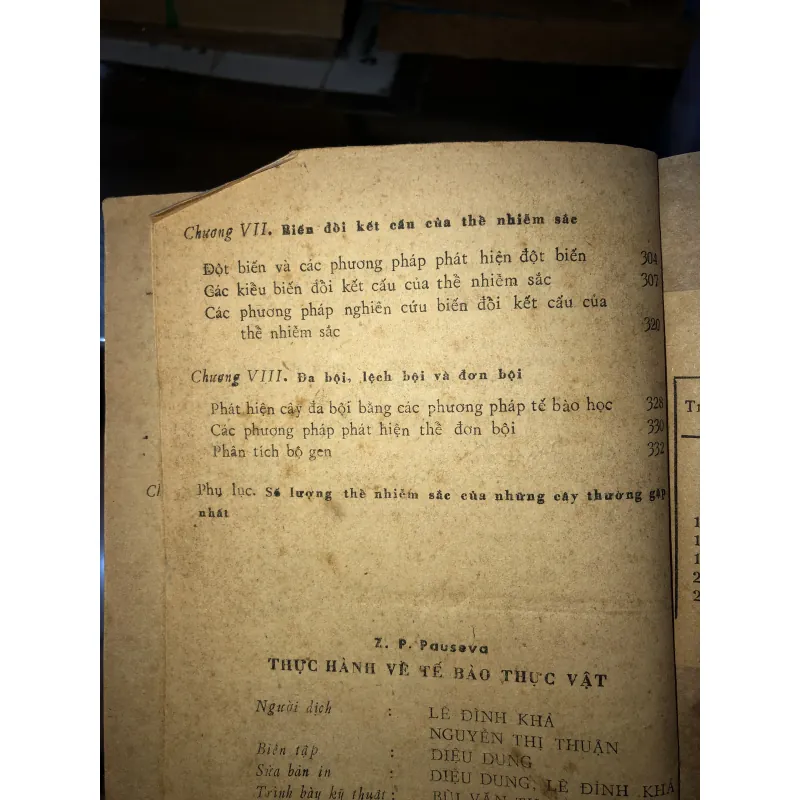 Chương VII. Biến đổi kết cấu của thể nhiễm sắc
Đột biến và các phương pháp phát hiện đột biến 304
Các kiểu biến đổi kết cấu của thể nhiễm sắc 307
Các phương pháp nghiên cứu biến đổi kết cấu của
thể nhiễm sắc 320
Chương VIII. Đa bội, lệch bội và đơn bội
Phát hiện cây đa bội bằng các phương pháp tế bào học 328
Các phương pháp phát hiện thể đơn bội 330
Phân tích bộ gen 332
Ch
Phụ lục. Số lượng thể nhiễm sắc của những cây thường gặp
nhất
Z. P. Pauseva
THỰC HÀNH VỀ TẾ BÀO THỰC VẬT
Người dịch : LÊ ĐÌNH KHẢ
NGUYỄN THỊ THUẬN
Biên tập : DIỆU DUNG
Sửa bản in : DIỆU DUNG, LÊ ĐÌNH KHẢ
Trình bày kỹ thuật : BÙI VĂN